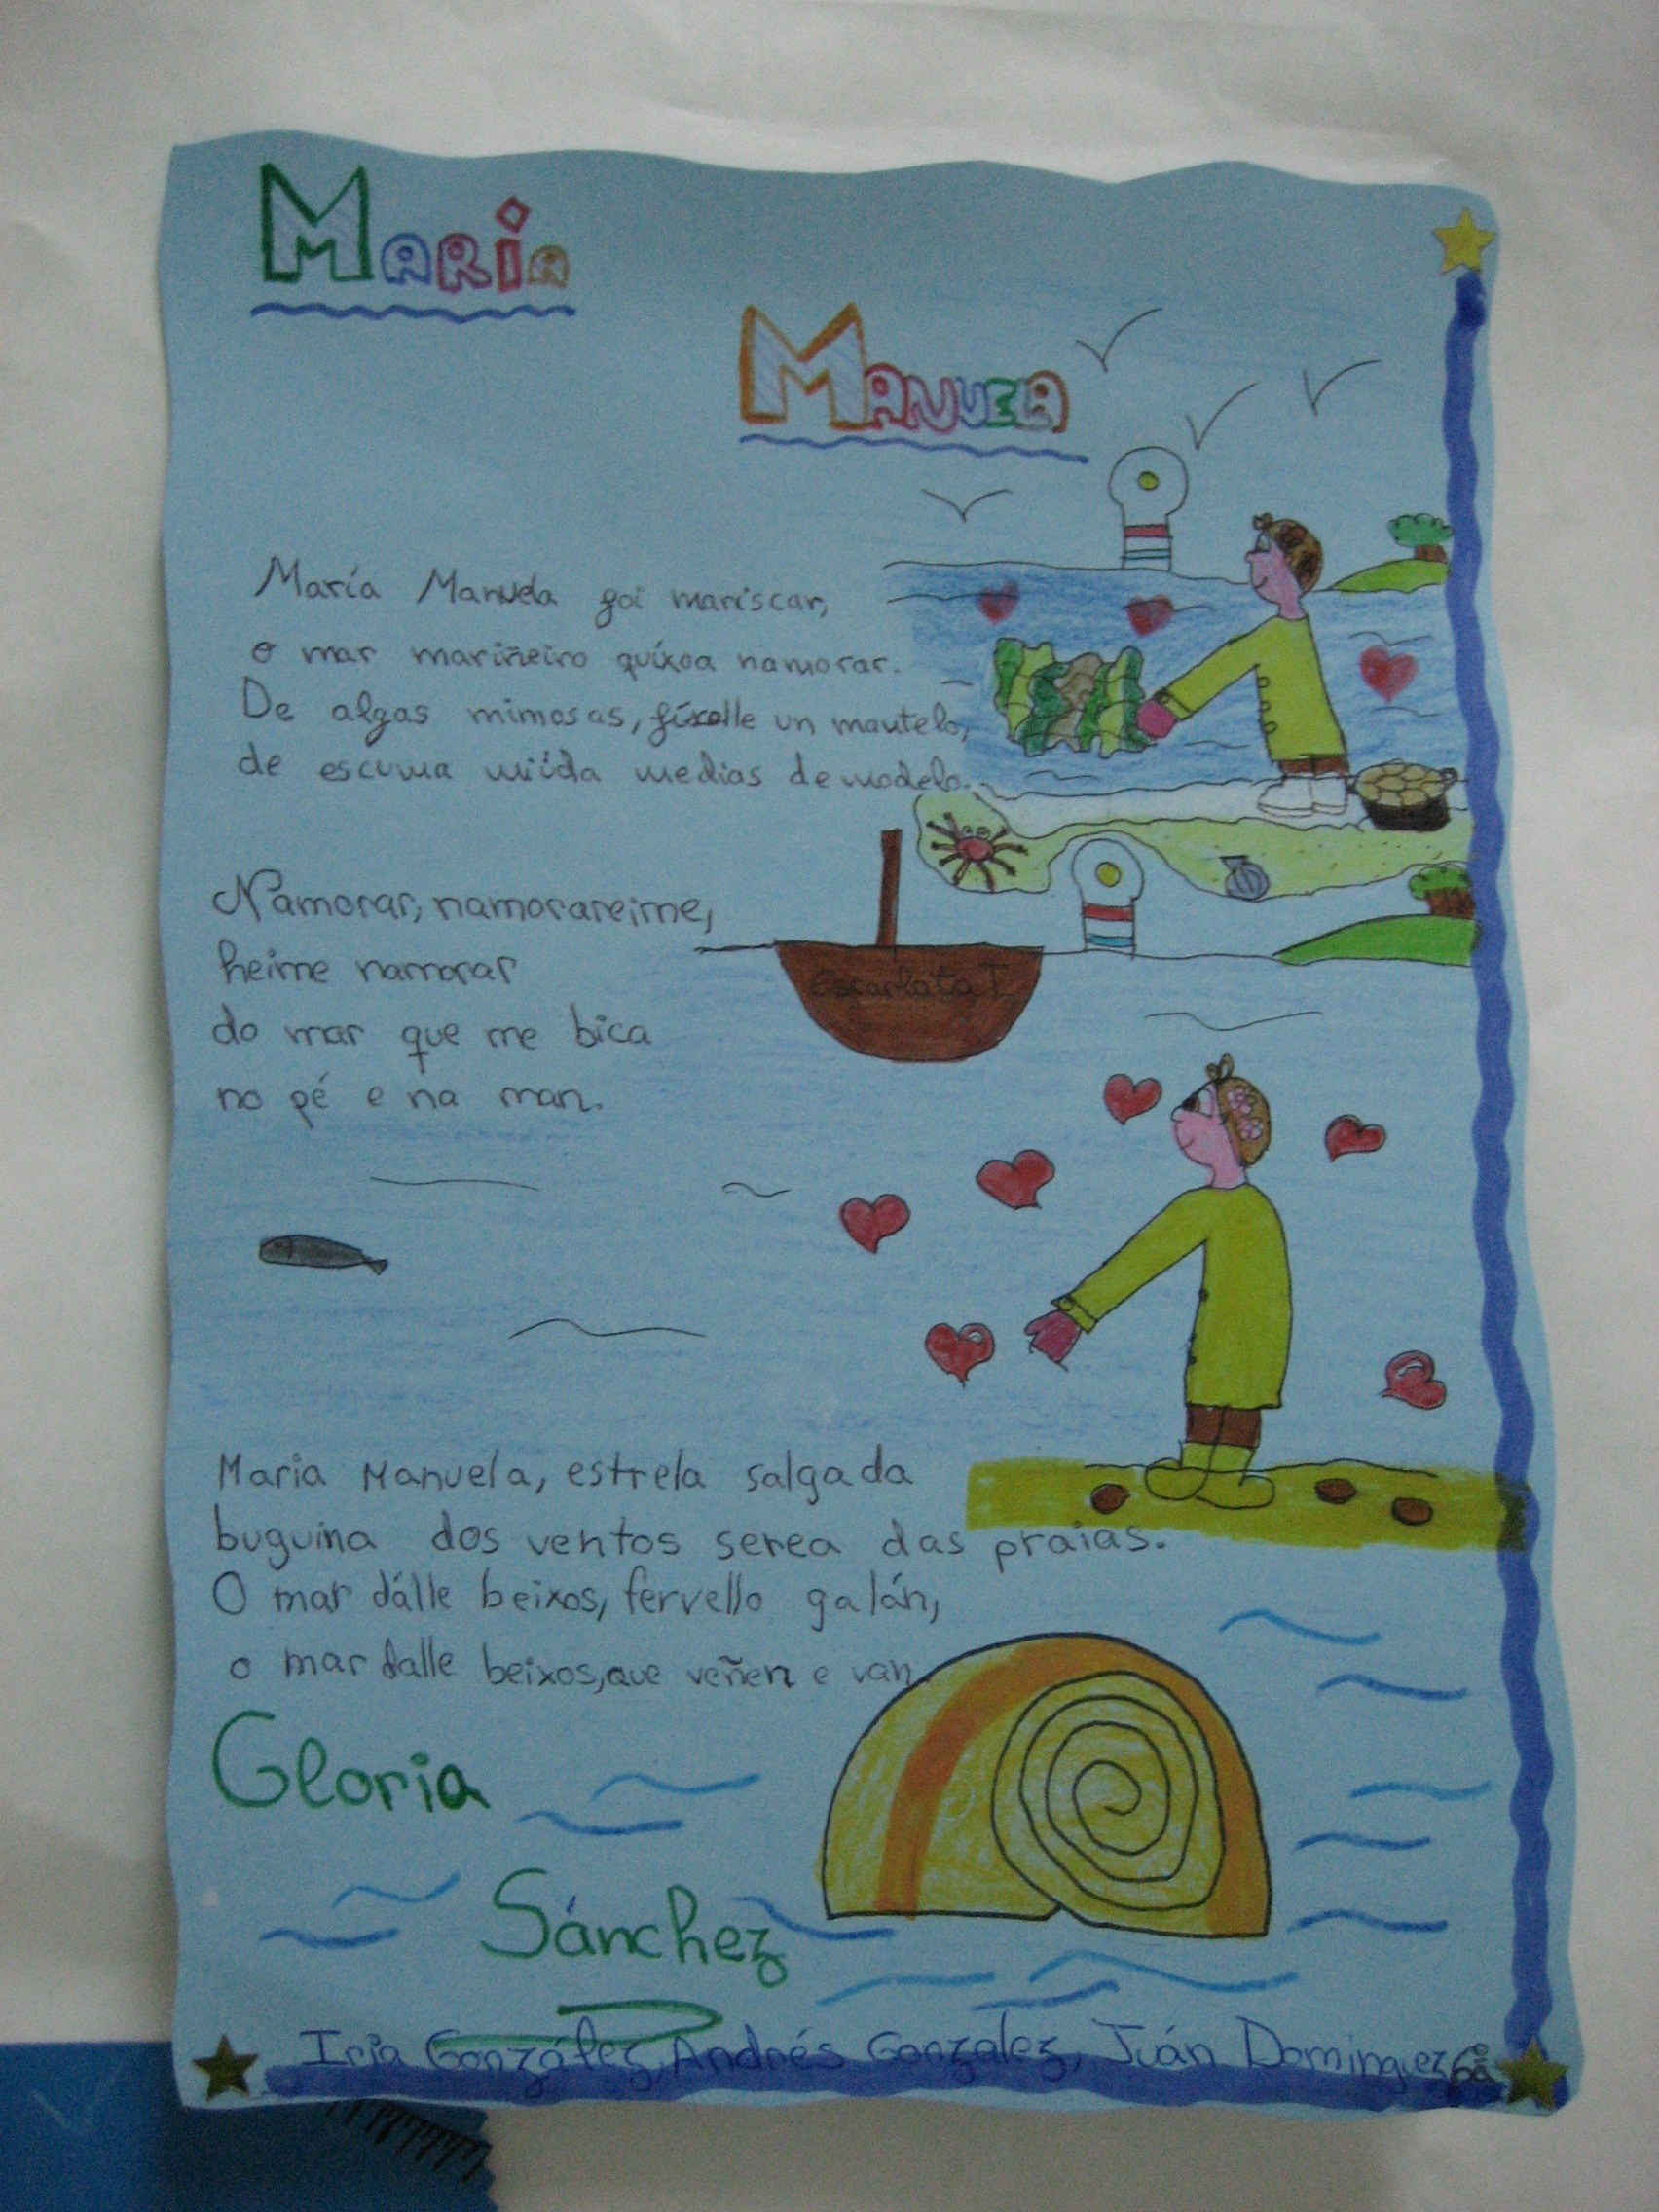 Maria
Manuela
María Manuela foi mariscar,
o mar mariñeiro quíxoa namorar.
De algas mimosas, fíxolle un mantelo,
de escuma miúda medias de modelo.
Namorar, namorareime,
heime namorar
do mar que me bica
no pé e na man.
Escarlata I
Maria Manuela, estrela salgada
buguina dos ventos serea das praias.
O mar dálle beixos, fervello galán,
o mar dalle beixos, que veñen e van.
Gloria
Sánchez
Iria González, Andrés Gonzalez, Juán Dominguez